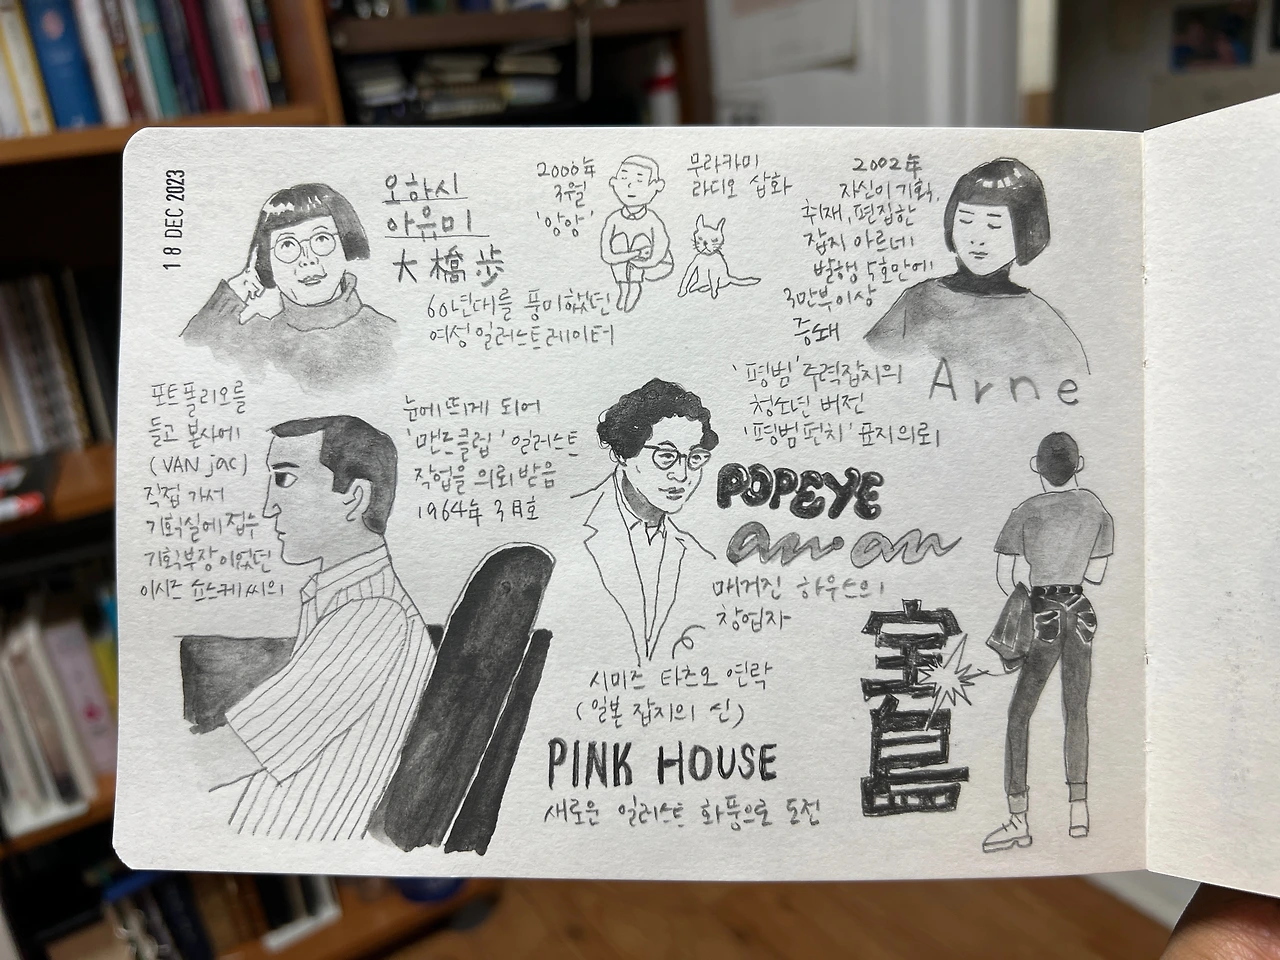 18 DEC 2023
오하시
아유미
大橋歩
60년대를 풍미했던
여성 일러스트레이터
2000年
3월
'앙앙'
무라카미
라디오 삽화
2002年
자신이 기획,
취재, 편집한
잡지 아르네
발행 5호만에
3만부 이상
증쇄
Arne
포트폴리오를
들고 본사에
(VAN jac)
직접 가서
기획실에 접수
기획부장이었던
이시즈 쇼스케씨의
눈에 띄게 되어
'맨즈클럽' 일러스트
작업을 의뢰 받음
1964年 3月호
'평범' 주력잡지의
청소년 버전
'평범펀치' 표지의뢰
POPEYE
an·an
매거진 하우스의
창업자
시미즈 타츠오 연락
(일본 잡지의 신)
PINK HOUSE
새로운 일러스트 화풍으로 도전
宝島